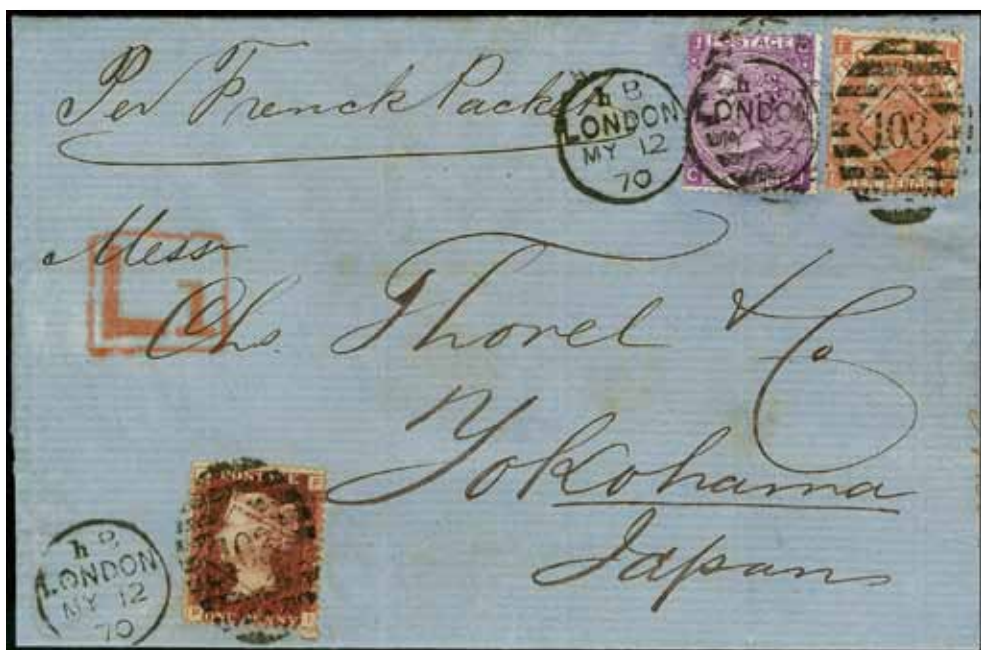 Per Frenck Packet
h B
LONDON
MY 12
70
POSTAGE
LONDON
103
L1
Messrs
Chs. Thorel & Co
Yokohama
Japan
h B
LONDON
MY 12
70
ONE PENNY